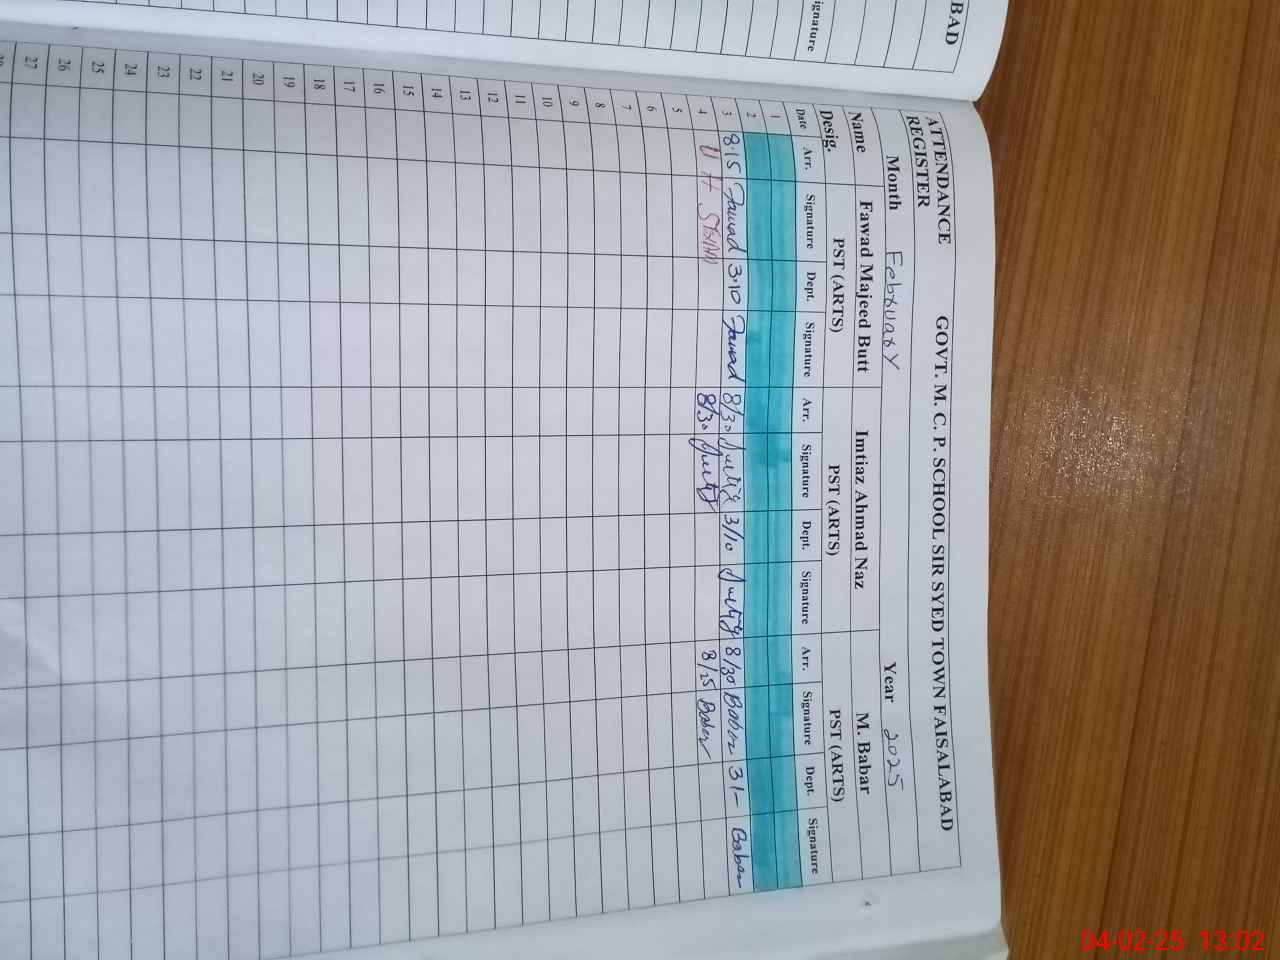 BAD
ignature
ATTENDANCE REGISTER GOVT. M. C. P. SCHOOL SIR SYED TOWN FAISALABAD
Month February Year 2025
Name Fawad Majeed Butt Imtiaz Ahmad Naz M. Babar
Desig. PST (ARTS) PST (ARTS) PST (ARTS)
Date Arr. Signature Dept. Signature Arr. Signature Dept. Signature Arr. Signature Dept. Signature
1
2
3 8.15 Fawad 3.10 Fawad 8/30 3/10 8/30 Babar 3/- Babar
4 8/30 8/25 Babar
5
6
7
8
9
10
11
12
13
14
15
16
17
18
19
20
21
22
23
24
25
26
27
04-02-25 13:02